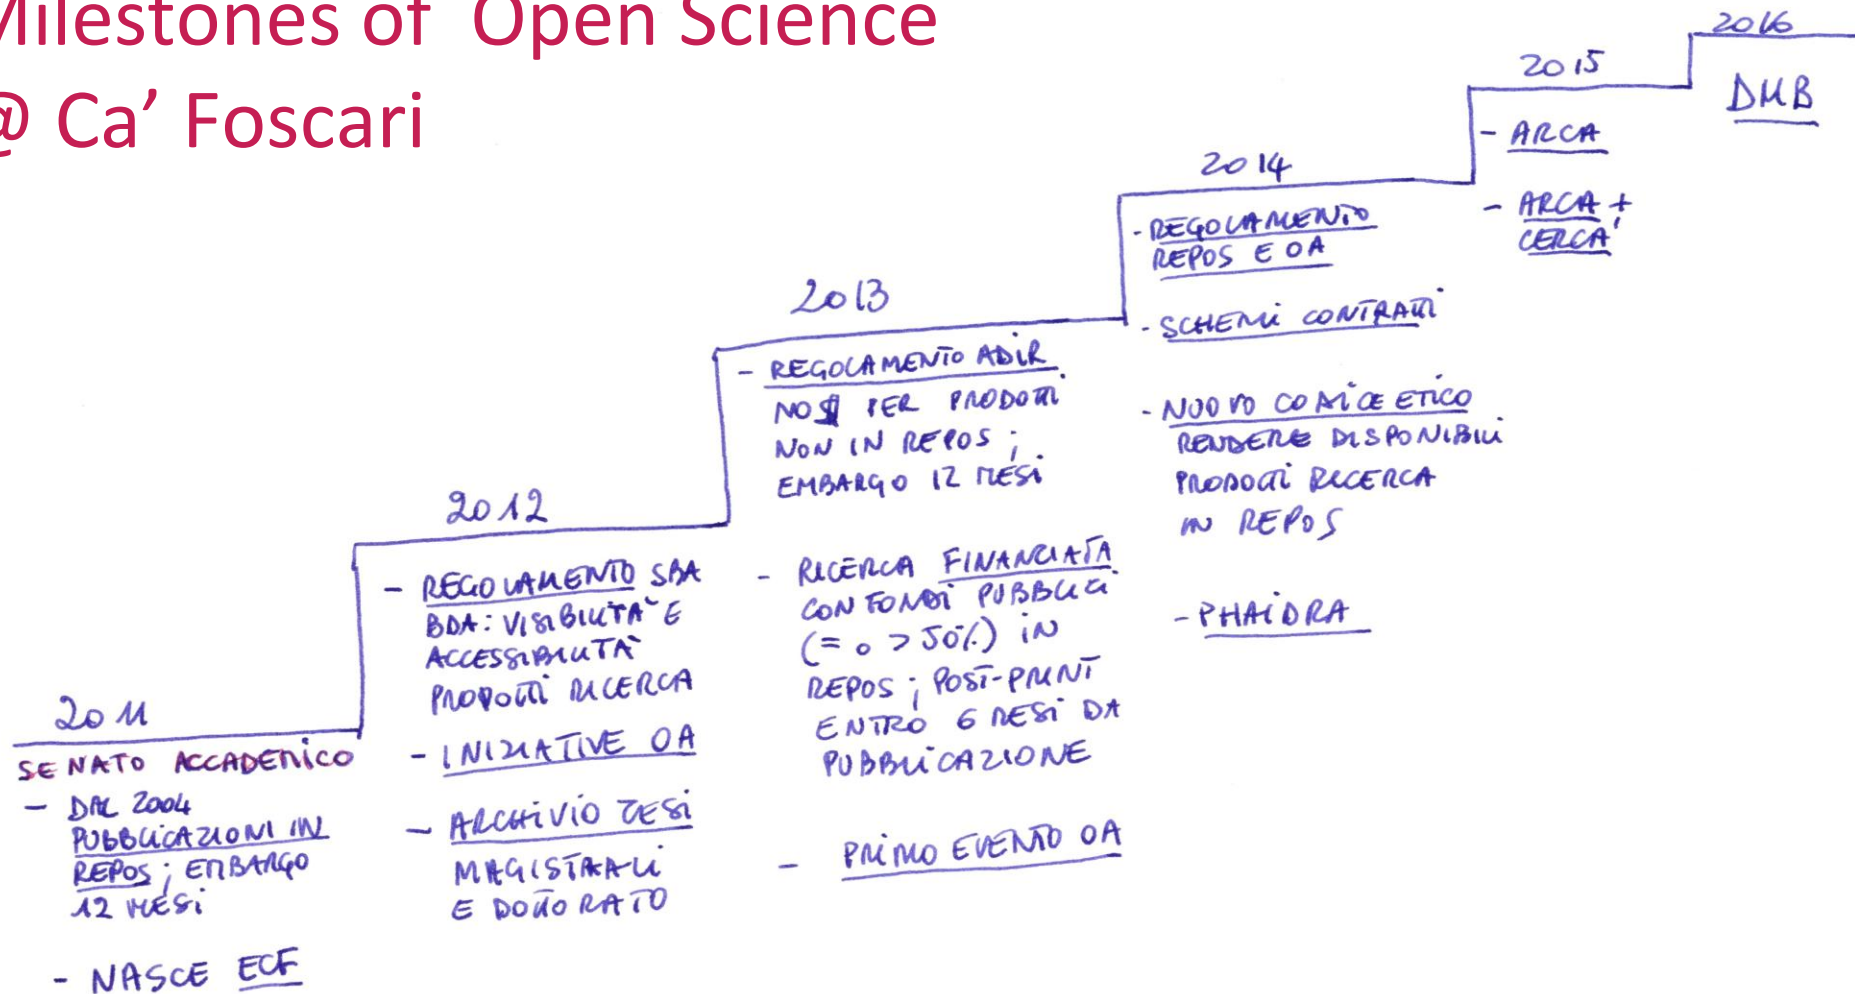 Milestones of Open Science
@ Ca' Foscari
2011
SENATO ACCADEMICO
- DAL 2004
PUBBLICAZIONI IN
REPOS; EMBARGO
12 MESI
- NASCE ECF
2012
- REGOLAMENTO SBA
BDA: VISIBILITA' E
ACCESSIBILITA'
PRODOTTI RICERCA
- INIZIATIVE OA
- ARCHIVIO TESI
MAGISTRALI
E DOTTORATO
2013
- REGOLAMENTO ADIR
NO $ PER PRODOTTI
NON IN REPOS;
EMBARGO 12 MESI
- RICERCA FINANZIATA
CON FONDI PUBBLICI
(= o > 50%) IN
REPOS; POST-PRINT
ENTRO 6 MESI DA
PUBBLICAZIONE
- PRIMO EVENTO OA
2014
- REGOLAMENTO
REPOS E OA
- SCHEMI CONTRATTI
- NUOVO CODICE ETICO
RENDERE DISPONIBILI
PRODOTTI RICERCA
IN REPOS
- PHAIDRA
2015
- ARCA
- ARCA +
CERCA'
2016
DMB